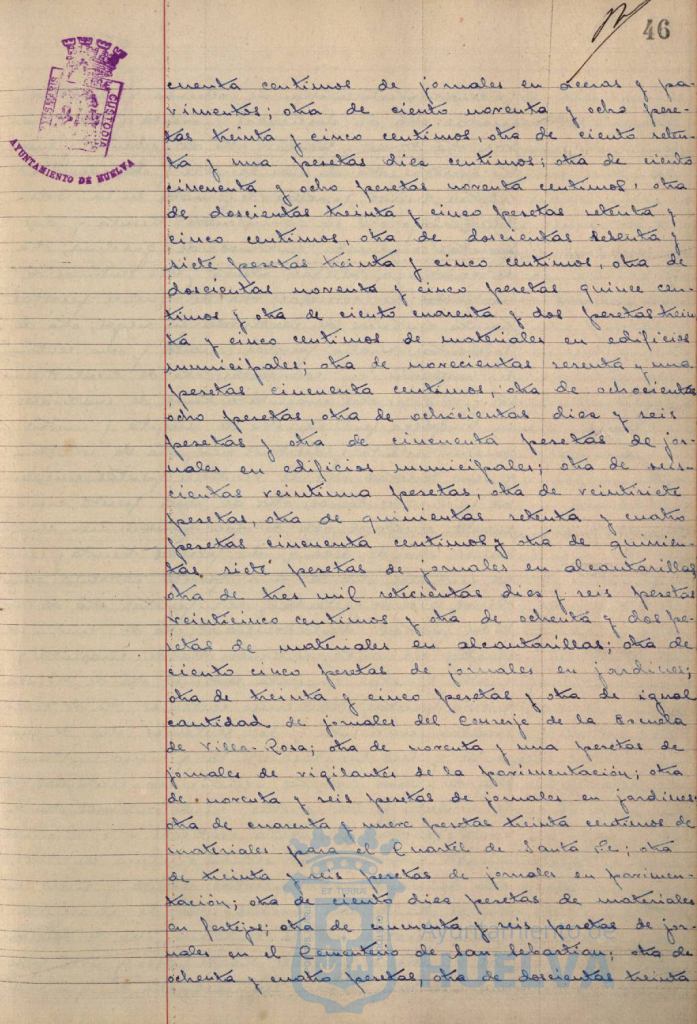 46
CUSTODIA
AYUNTAMIENTO DE HUELVA
cuenta centimos de jornales en aceras y pa-
vimentos; otra de ciento noventa y ocho pese-
tas treinta y cinco centimos, otra de ciento seten-
ta y una pesetas diez centimos; otra de ciento
cincuenta y ocho pesetas noventa centimos, otra
de doscientas treinta y cinco pesetas setenta y
cinco centimos, otra de doscientas setenta y
siete pesetas treinta y cinco centimos, otra de
doscientas noventa y cinco pesetas quince cen-
timos y otra de ciento cuarenta y dos pesetas trein
ta y cinco centimos de materiales en edificios
municipales; otra de novecientas sesenta y una
pesetas cincuenta centimos, otra de ochocientas
ocho pesetas, otra de ochocientas diez y seis
pesetas y otra de cincuenta pesetas de jor-
nales en edificios municipales; otra de seis-
cientas veintiuna pesetas, otra de veintisiete
pesetas, otra de quinientas setenta y cuatro
pesetas cincuenta centimos y otra de quinien-
tas siete pesetas de jornales en alcantarillas
otra de tres mil setecientas diez y seis pesetas
veinticinco centimos y otra de ochenta y dos pe-
setas de materiales en alcantarillas; otra de
ciento cinco pesetas de jornales en jardines;
otra de treinta y cinco pesetas y otra de igual
cantidad de jornales del Conserje de la Escuela
de Villa-Rosa; otra de noventa y una pesetas de
jornales de vigilantes de la pavimentación; otra
de noventa y seis pesetas de jornales en jardines
otra de cuarenta y nueve pesetas treinta centimos de
materiales para el Cuartel de Santa Fe; otra
de treinta y seis pesetas de jornales en pavimen-
tación; otra de ciento diez pesetas de materiales
en festejos; otra de cincuenta y seis pesetas de jor-
nales en el Cementerio de San Sebastian; otra de
ochenta y cuatro pesetas, otra de doscientas treinta
ET TERRA
Ayuntamiento de
HUELVA